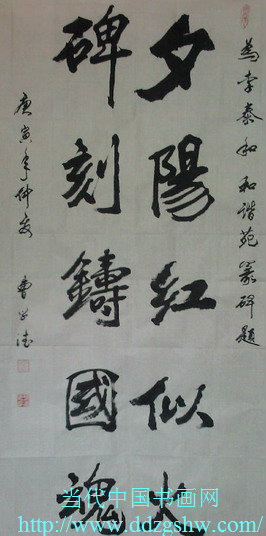 為李泰和和谐苑篆碑題
夕陽紅似火
碑刻鑄國魂
庚寅年仲春
當代中国书画网
http://www.ddzgshw.com/